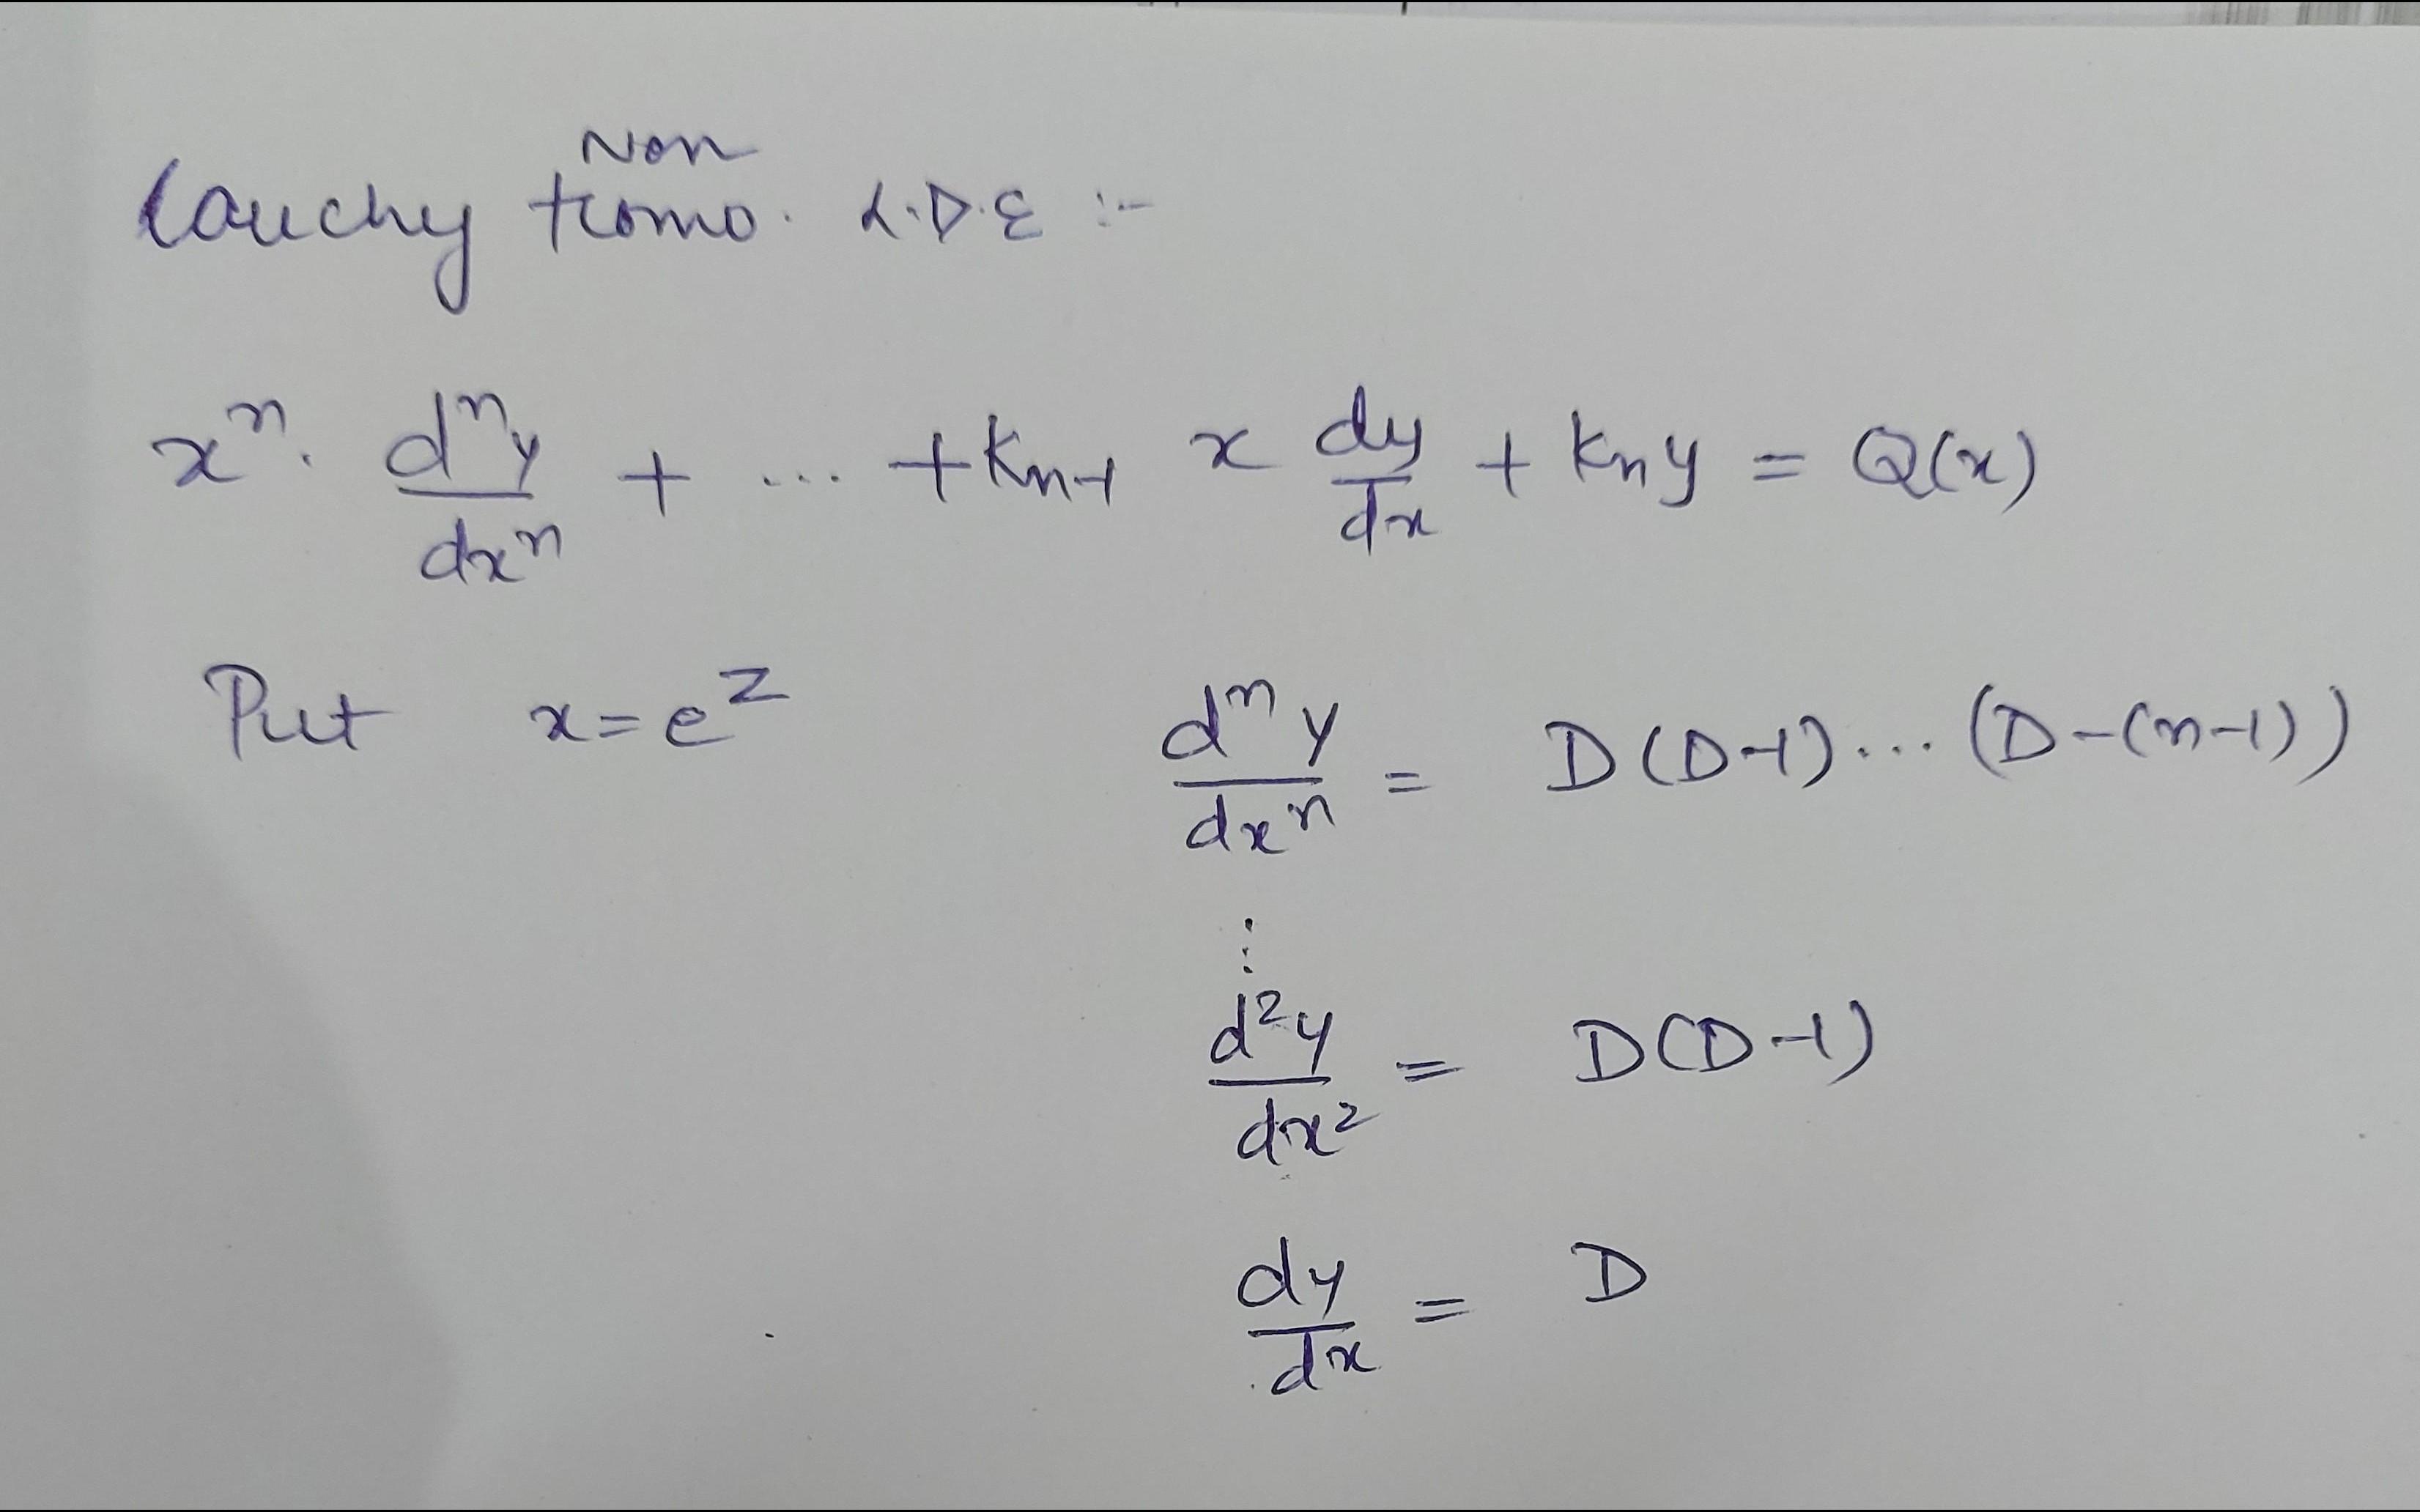 Non
Cauchy Homo. L.D.E :-
x^n . d^n y / dx^n + ... + k_{n-1} x dy/dx + k_n y = Q(x)
Put x = e^z
d^n y / dx^n = D(D-1)...(D-(n-1))
⋮
d^2 y / dx^2 = D(D-1)
dy/dx = D